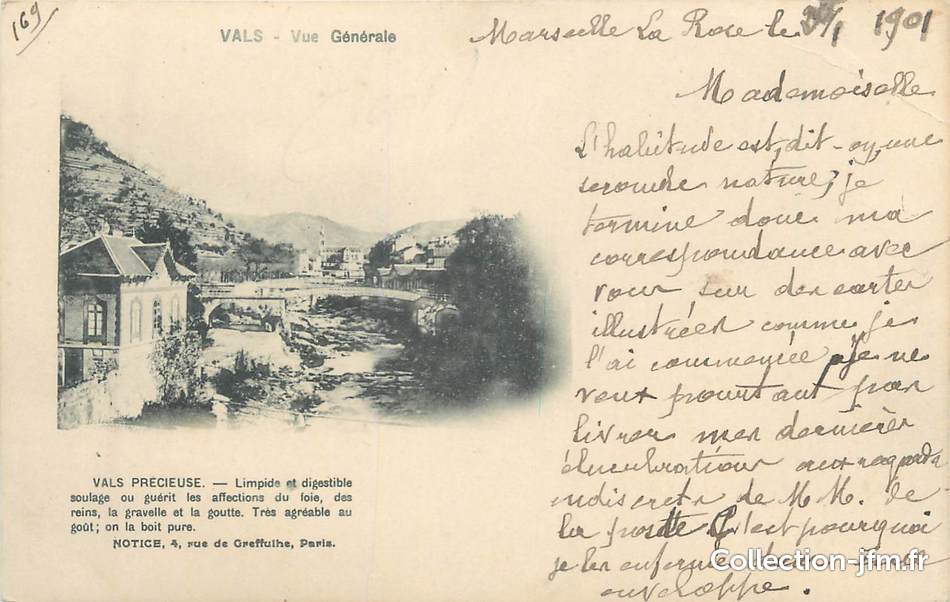 169
VALS - Vue Générale
Marseille La Rose le 1901
Mademoiselle
L'habitude est, dit-on, une
seconde nature; je
termine donc ma
correspondance avec
vous sur des cartes
illustrées comme je
l'ai commencée Je ne
veux pourtant pas
livrer mes dernières
élucubrations aux regards
indiscrets de M M. de
la poste C'est pourquoi
je les enferme
enveloppe.
VALS PRÉCIEUSE. — Limpide et digestible
soulage ou guérit les affections du foie, des
reins, la gravelle et la goutte. Très agréable au
goût; on la boit pure.
NOTICE, 4, rue de Greffulhe, Paris.
Collection-jfm.fr